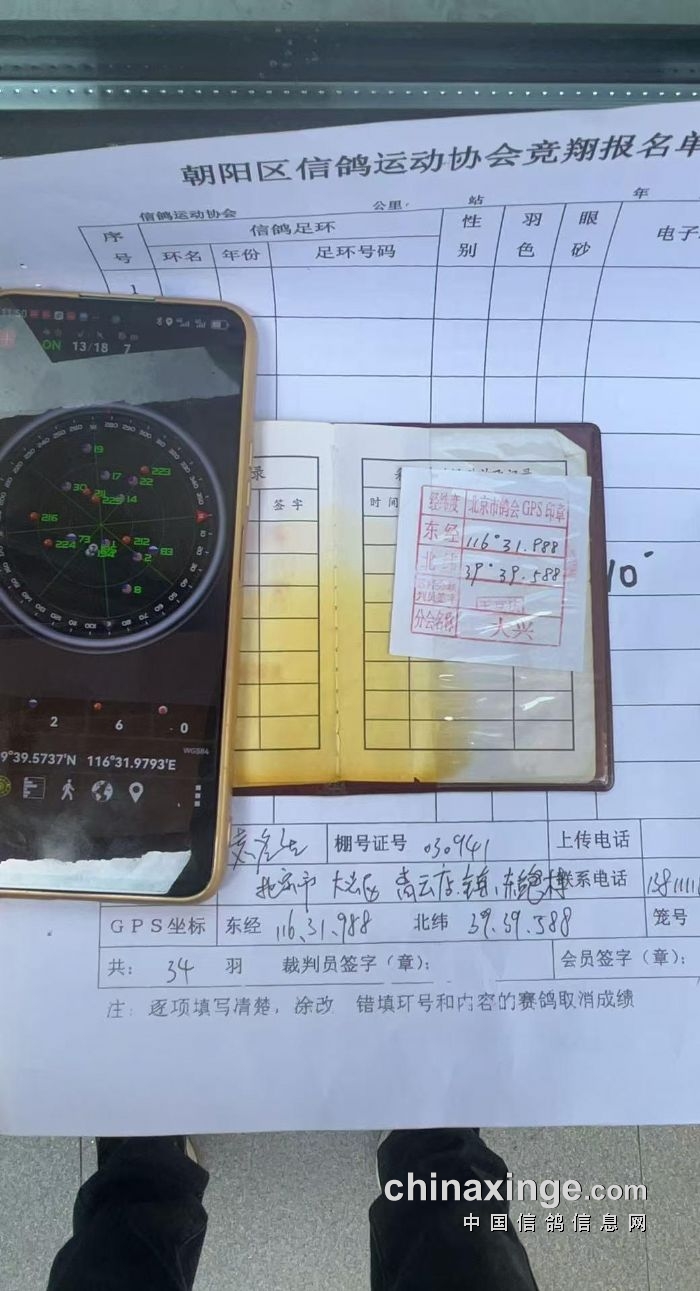 朝阳区信鸽运动协会竞翔报名单
信鸽运动协会 公里, 站 年
序号 信鸽足环 性别 羽色 眼砂 电子
环名 年份 足环号码
1
ON 13/18 7
19
17 22 223
30 225 14
216
224 73 212 63
2
8
2 6 0
WGS84
9°39.5737'N 116°31.9793'E
录
签字
时间
经纬度 北京市鸽会GPS印章
东经 116°31.988
北纬 39°39.588
分会名称 大兴
10
棚号证号 030941 上传电话
北京市 大兴区 青云店 镇 联系电话 1381111
GPS坐标 东经 116.31.988 北纬 39.39.588 笼号
共: 34 羽 裁判员签字(章): 会员签字(章):
注: 逐项填写清楚, 涂改 错填环号和内容的赛鸽取消成绩
chinaxinge.com
中国信鸽信息网